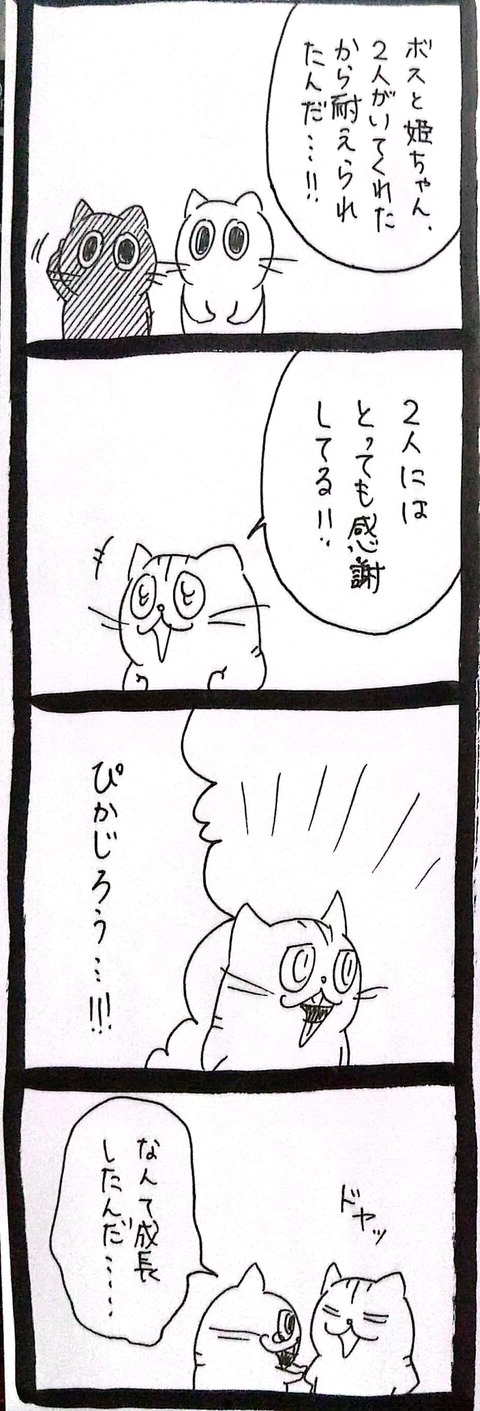 ボスと姫ちゃん、
2人がいてくれた
から耐えられ
たんだ…!!
2人には
とっても感謝
してる!!
ぴかじろう…!!!
ドヤッ
なんて成長
したんだ……